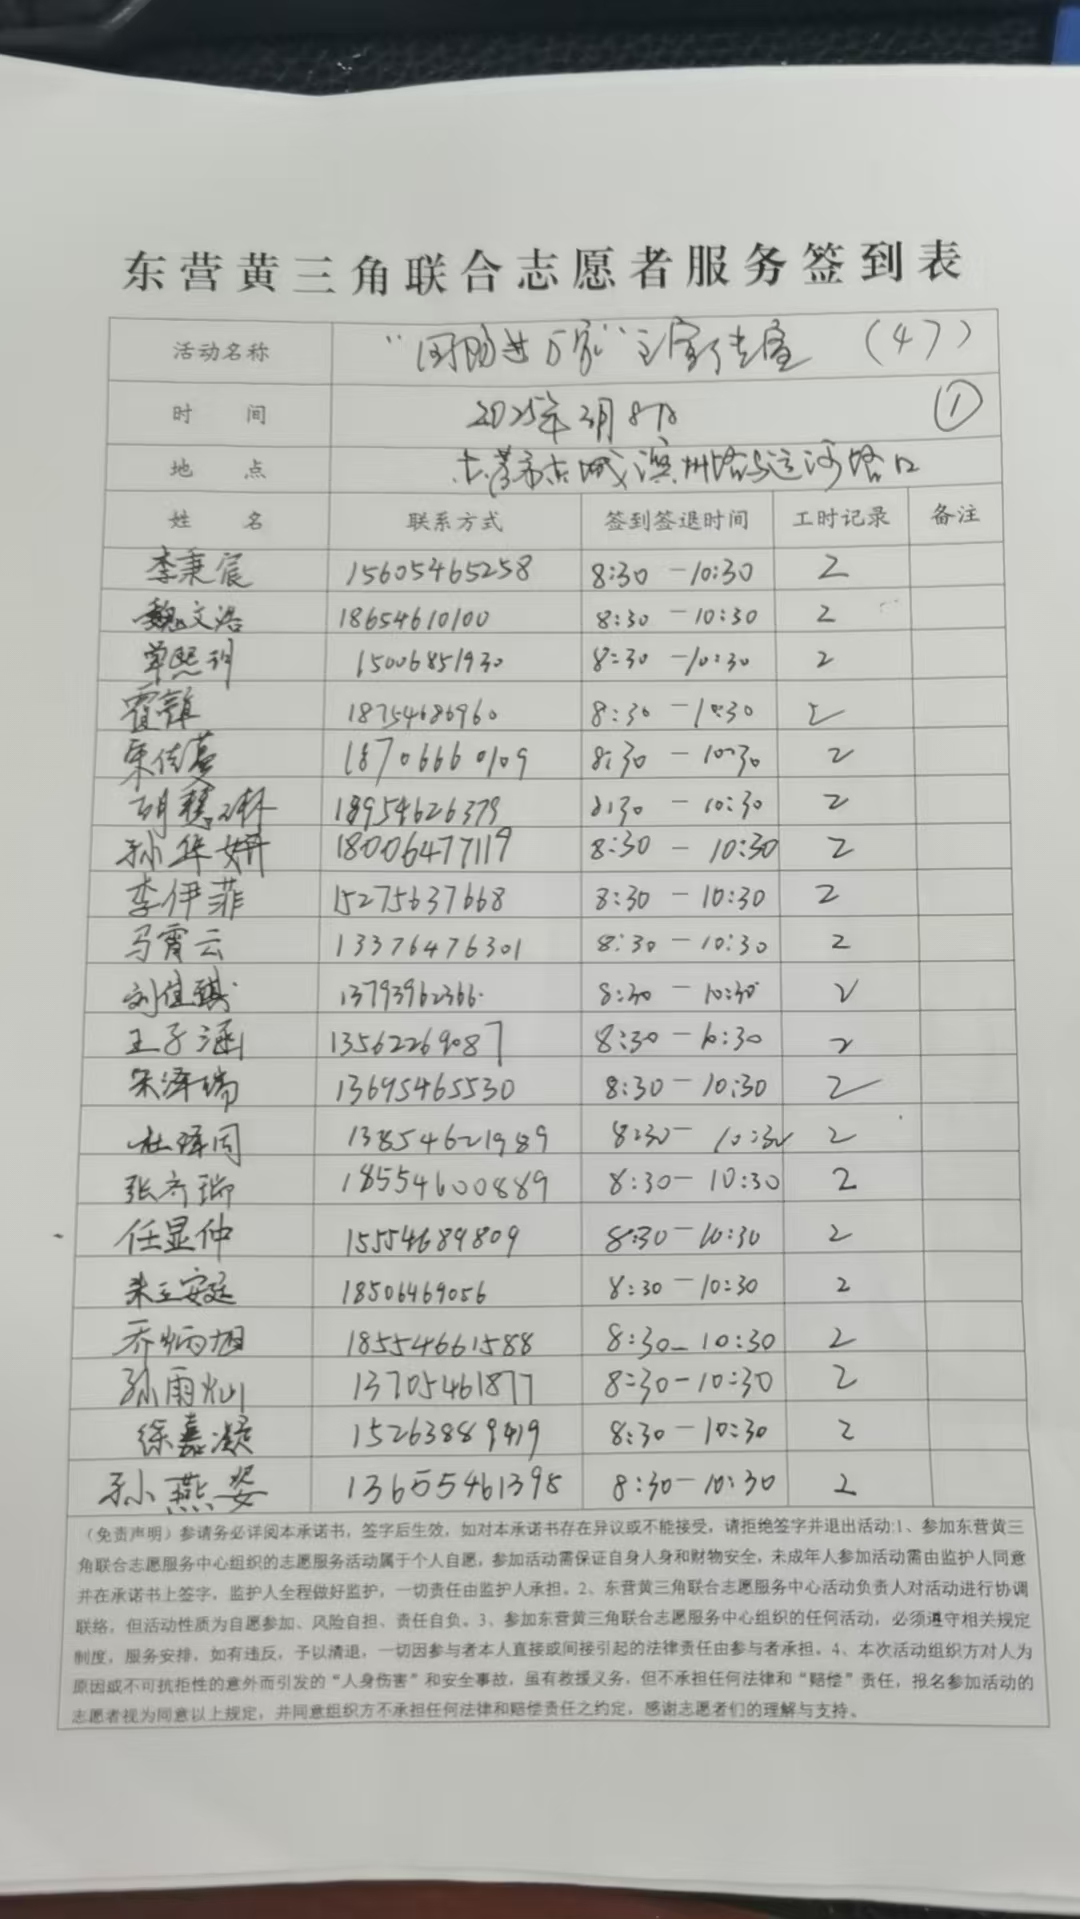 东营黄三角联合志愿者服务签到表
活动名称 "国防进万家"主宣传 (47)
时 间 2025年3月8日 ①
地 点 古城滨州路与运河路口
姓 名 联系方式 签到签退时间 工时记录 备注
李秉宸 15605465258 8:30 -10:30 2
魏文浩 18654610100 8:30 -10:30 2
单熙玥 15006851930 8:30 -10:30 2
霍 18754686960 8:30 -10:30 2
朱佳蔓 18706660109 8:30 - 10:30 2
胡慧琳 18954626379 8:30 - 10:30 2
孙华妍 18006477119 8:30 - 10:30 2
李伊菲 15275637668 8:30 - 10:30 2
马霄云 13376476301 8:30 - 10:30 2
刘佳琪 13793962366 8:30 - 10:30 2
王子涵 13562269087 8:30 - 10:30 2
朱泽瑞 13695465530 8:30 - 10:30 2
杜泽同 13854621989 8:30 - 10:30 2
张齐瑞 18554600889 8:30 - 10:30 2
任显仲 15554689809 8:30 - 10:30 2
朱王安廷 18506469056 8:30 - 10:30 2
乔炳旭 18554661588 8:30 - 10:30 2
孙雨灿 13705461877 8:30 - 10:30 2
徐嘉凝 15263889419 8:30 - 10:30 2
孙燕姿 13605461398 8:30 - 10:30 2
(免责声明)参请务必详阅本承诺书,签字后生效,如对本承诺书存在异议或不能接受,请拒绝签字并退出活动:1、参加东营黄三
角联合志愿服务中心组织的志愿服务活动属于个人自愿,参加活动需保证自身人身和财物安全,未成年人参加活动需由监护人同意
并在承诺书上签字,监护人全程做好监护,一切责任由监护人承担。2、东营黄三角联合志愿服务中心活动负责人对活动进行协调
联络,但活动性质为自愿参加、风险自担、责任自负。3、参加东营黄三角联合志愿服务中心组织的任何活动,必须遵守相关规定
制度,服务安排,如有违反,予以清退,一切因参与者本人直接或间接引起的法律责任由参与者承担。4、本次活动组织方对人为
原因或不可抗拒性的意外而引发的"人身伤害"和安全事故,虽有救援义务,但不承担任何法律和"赔偿"责任,报名参加活动的
志愿者视为同意以上规定,并同意组织方不承担任何法律和赔偿责任之约定,感谢志愿者们的理解与支持。